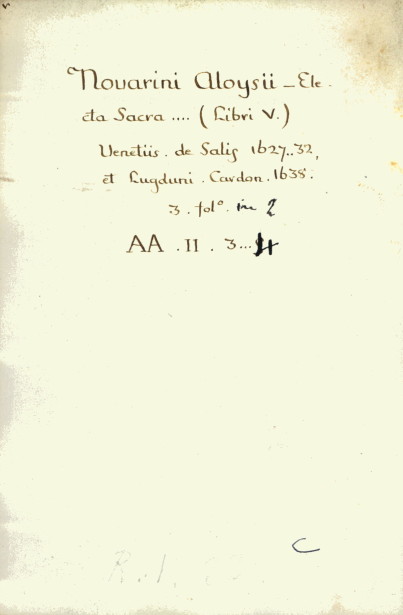 Novarini Aloysii — Ele-
cta Sacra .... ( Libri V. )
Venetiis . de Salis 1627..32,
et Lugduni . Cardon . 1635.
3 . folº . in 2
AA . II . 3...4
C